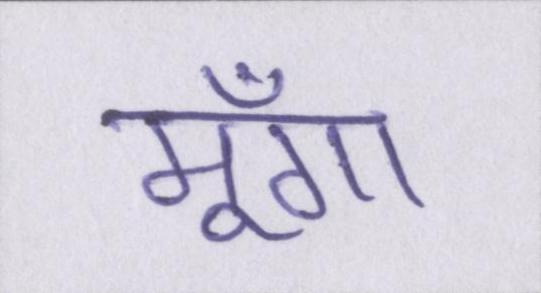 मूँगा